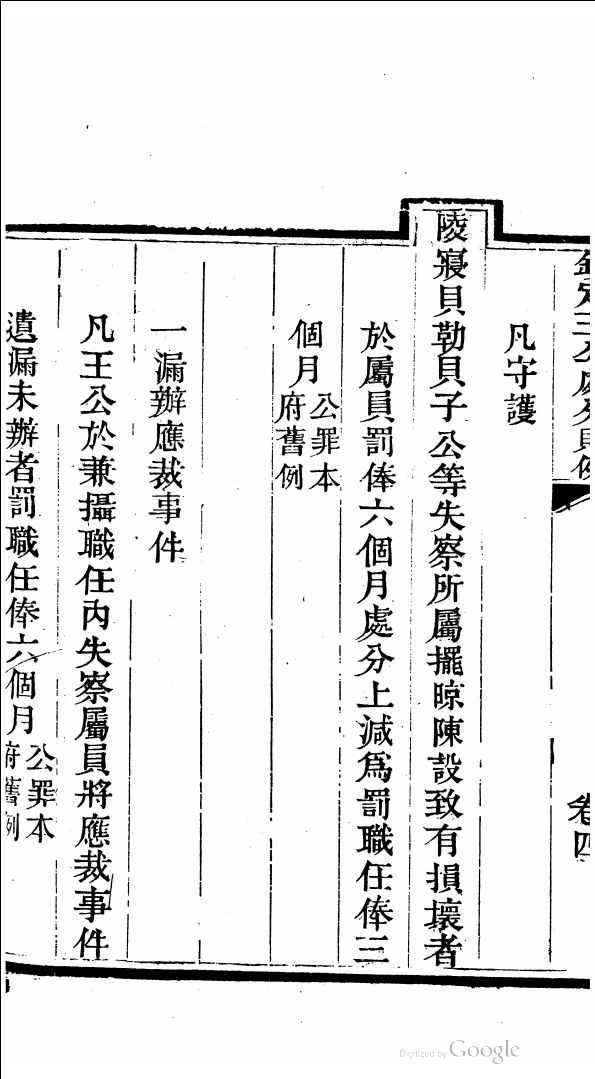 欽定王公處分則例
卷四
凡守護
陵寢貝勒貝子公等失察所屬擺晾陳設致有損壞者
於屬員罰俸六個月處分上減爲罰職任俸三
個月公罪本府舊例
一漏辦應裁事件
凡王公於兼攝職任內失察屬員將應裁事件
遺漏未辦者罰職任俸六個月公罪本府舊例
Digitized by Google